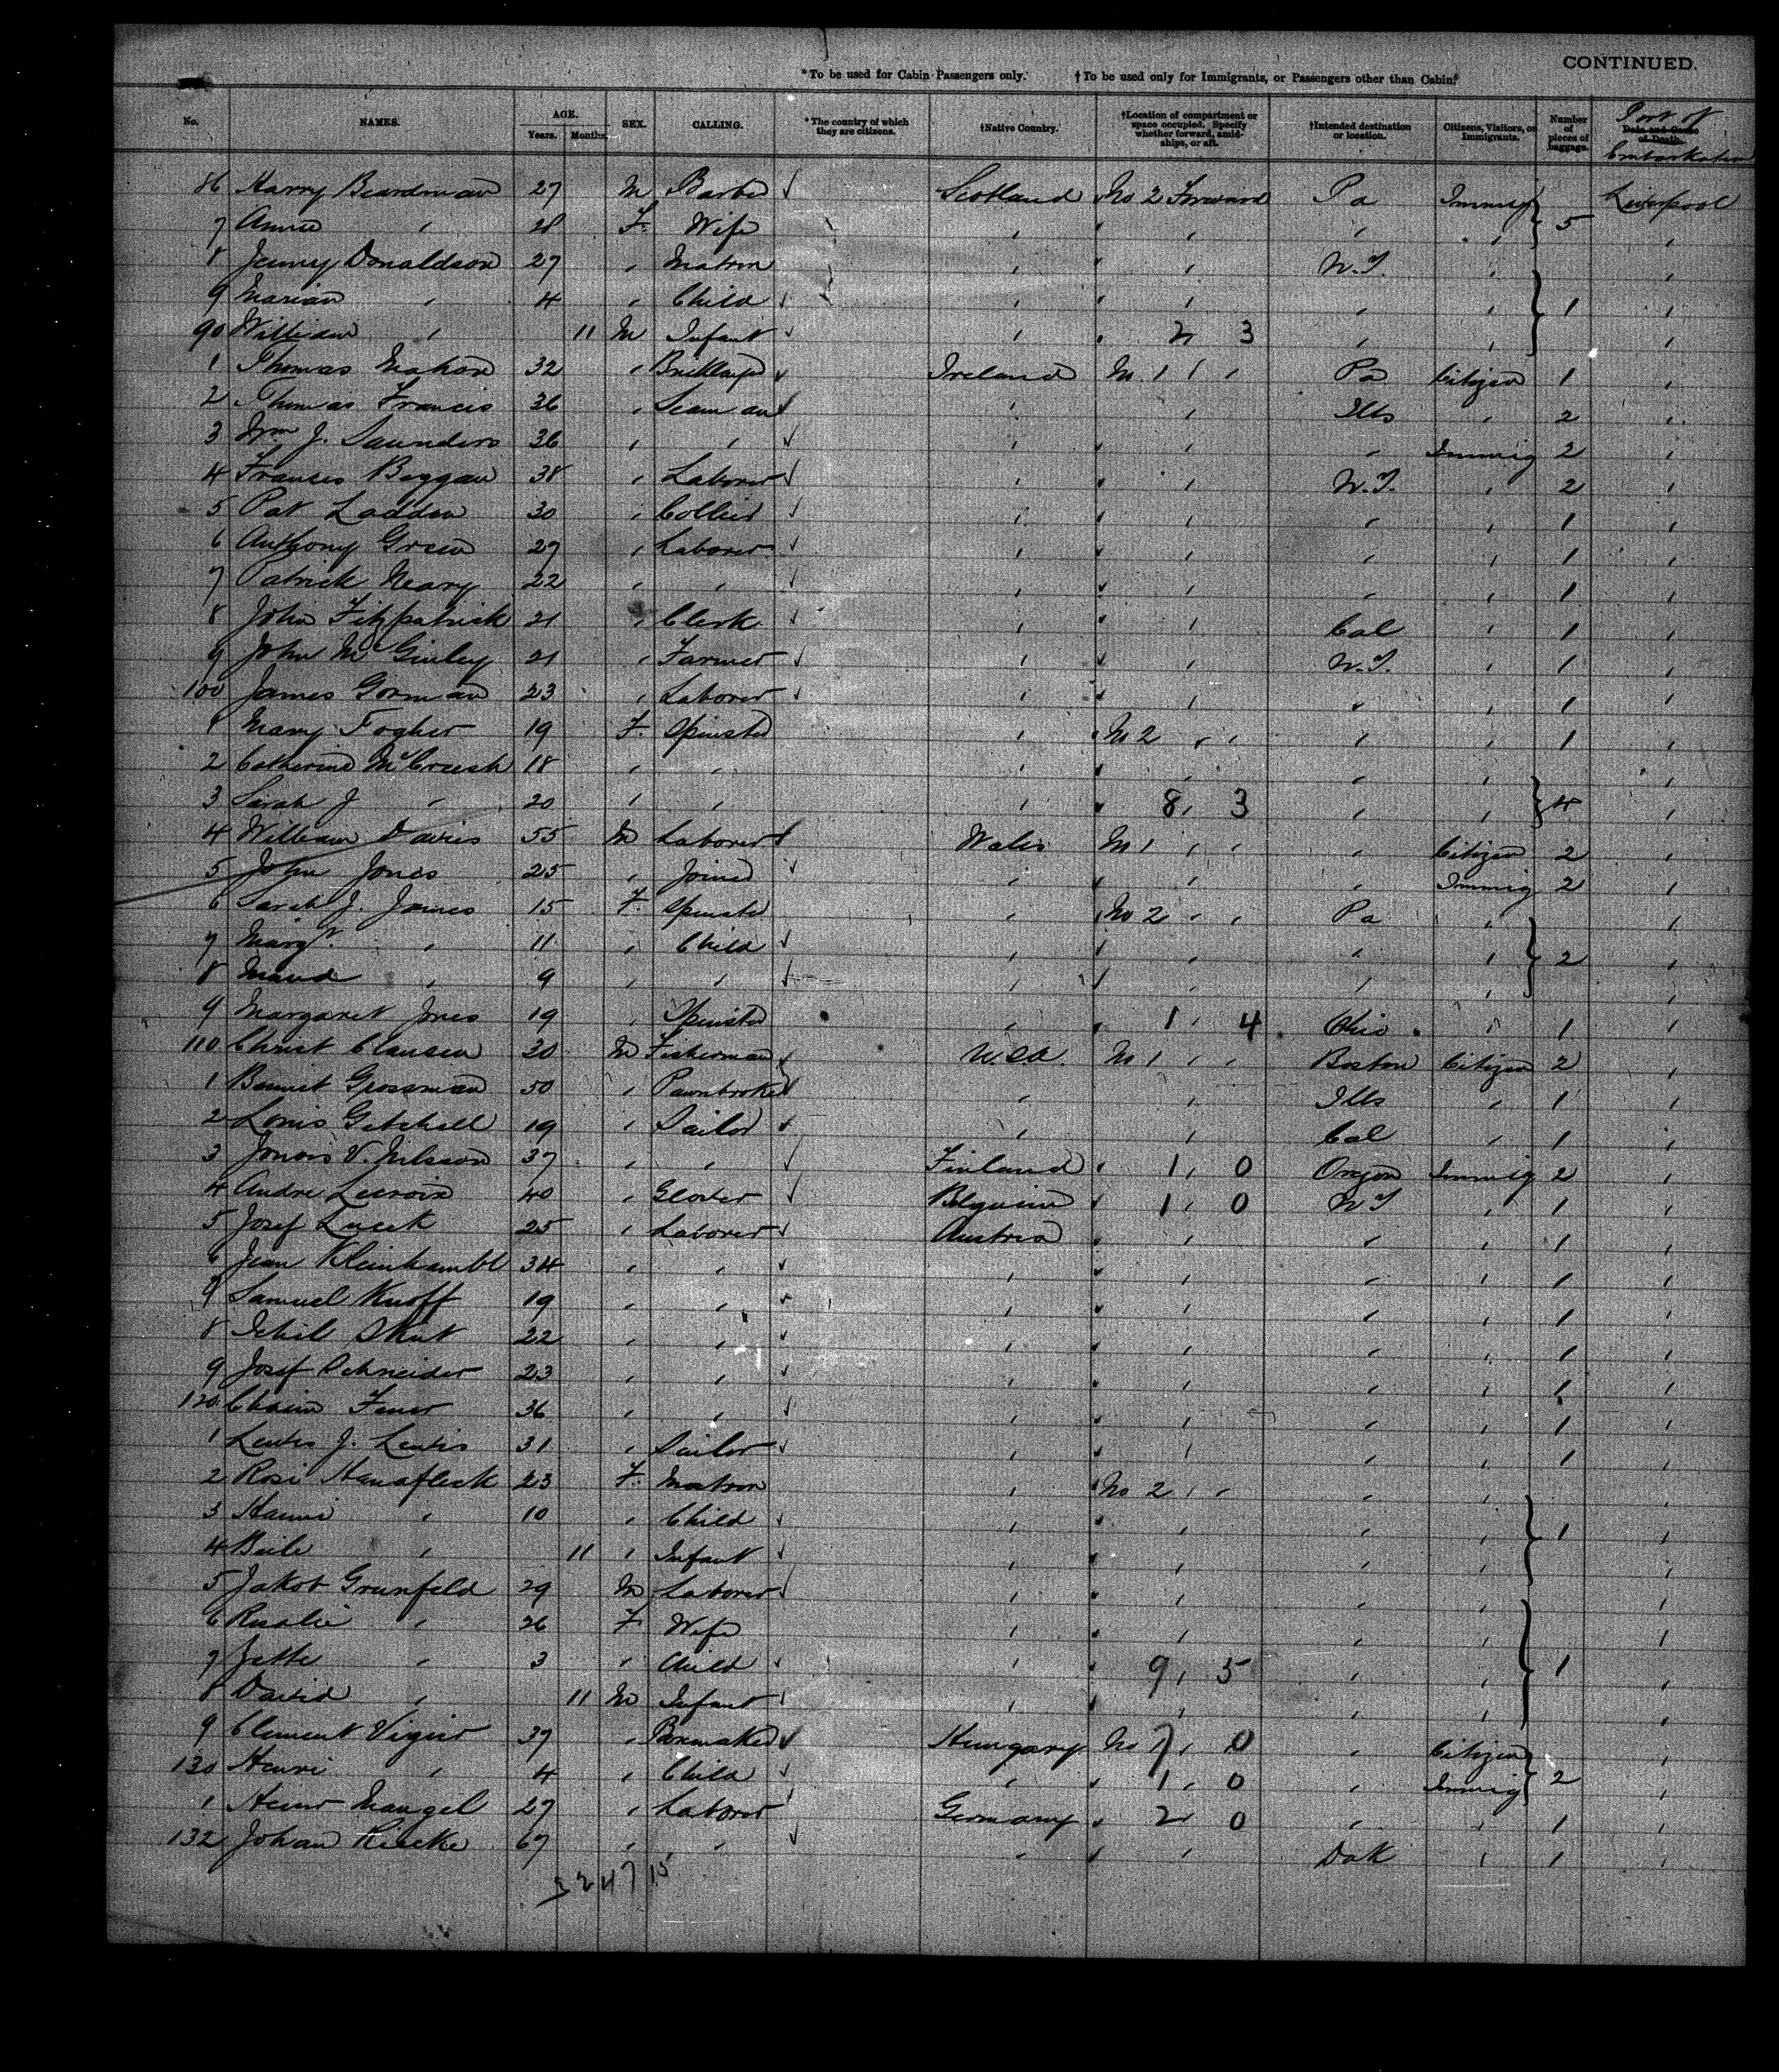 CONTINUED.
*To be used for Cabin Passengers only. †To be used only for Immigrants, or Passengers other than Cabin.
No. NAMES. AGE. Years. Months. SEX. CALLING. *The country of which they are citizens. †Native Country. †Location of compartment or space occupied. Specify whether forward, amidships, or aft. †Intended destination or location. Citizens, Visitors, or Immigrants. Number of pieces of baggage. Date and Cause of Death. Port of Embarkation
86 Harry Beardman 27 M Barber Scotland No 2 Forward Pa Immig 5 Liverpool
7 Annie " 28 F. Wife " " " " " "
8 Jenny Donaldson 27 " Matron " " " N.Y. " "
9 Marian " 4 " Child " " " " " 1 "
90 William " 11 M Infant " " 2 3 " " "
1 Thomas Mahon 32 " Bricklayer Ireland No 1 " " Pa Citizen 1 "
2 Thomas Francis 36 " Seaman " " Ills " 2 "
3 Wm J. Saunders 36 " " " " " " Immig 2 "
4 Francis Beggan 38 " Laborer " " " N.Y. " 2 "
5 Pat Ladden 30 " Collier " " " " " 1 "
6 Anthony Grew 27 " Laborer " " " " " 1 "
7 Patrick Neary 22 " " " " " " " 1 "
8 John Fitzpatrick 21 " Clerk " " " Cal " 1 "
9 John McGinley 21 " Farmer " " " N.Y. " 1 "
100 James Gorman 23 " Laborer " " " " " 1 "
1 Mary Fogher 19 F. Spinster " No 2 " " " " 1 "
2 Catherine McCreesh 18 " " " " " " " "
3 Sarah J " 20 " " " " 8 " 3 " " 4 "
4 William Davies 55 M Laborer Wales No 1 " " " Citizen 2 "
5 John Jones 25 " Joiner " " " " Immig 2 "
6 Sarah J. James 15 F. Spinster " No 2 " " Pa " "
7 Margt. " 11 " Child " " " " " 2 "
8 Maud " 9 " " " " " " " "
9 Margaret Jones 19 " Spinster " " 1 " 4 Ohio " 1 "
110 Christ Clausen 30 M Fisherman U.S.A. No 1 " " Boston Citizen 2 "
1 Bennet Grossman 50 " Pawnbroker " " Ills " 1 "
2 Louis Getchell 19 " Sailor " " Cal " 1 "
3 Jonas V. Nilsson 37 " " Finland " 1 " 0 Oregon Immig 2 "
4 Andre Lecroix 40 " Glover Belgium " 1 " 0 N Y " 1 "
5 Josef Lucek 25 " Laborer Austria " " " " 1 "
6 Jean Kleinhambl 34 " " " " " " " 1 "
7 Samuel Knoff 19 " " " " " " " 1 "
8 Ichil Skut 22 " " " " " " " 1 "
9 Josef Schneider 23 " " " " " " " 1 "
120 Chaim Feuer 36 " " " " " " " 1 "
1 31 " Sailor " " " " " 1 "
2 Rosi Hanafleck 23 F. Matron " No 2 " " " " "
3 Hanni " 10 " Child " " " " " 1 "
4 Beile " 11 " Infant " " " " " "
5 Jakob Grunfeld 29 M Laborer " " " " " "
6 Rosalie " 26 F Wife " " " " " "
7 Jette " 3 " Child " " 9 " 5 " " 1 "
8 David " 11 M Infant " " " " " "
9 Clement Vigier 37 " Boxmaker Hungary No 7 " 0 " Citizen "
130 Henri " 4 " Child " " 1 " 0 " Immig 2 "
1 Mangel 27 " Laborer Germany " 2 0 " " 1 "
132 Johan Riecke 67 " " " " " Dak " 1 "